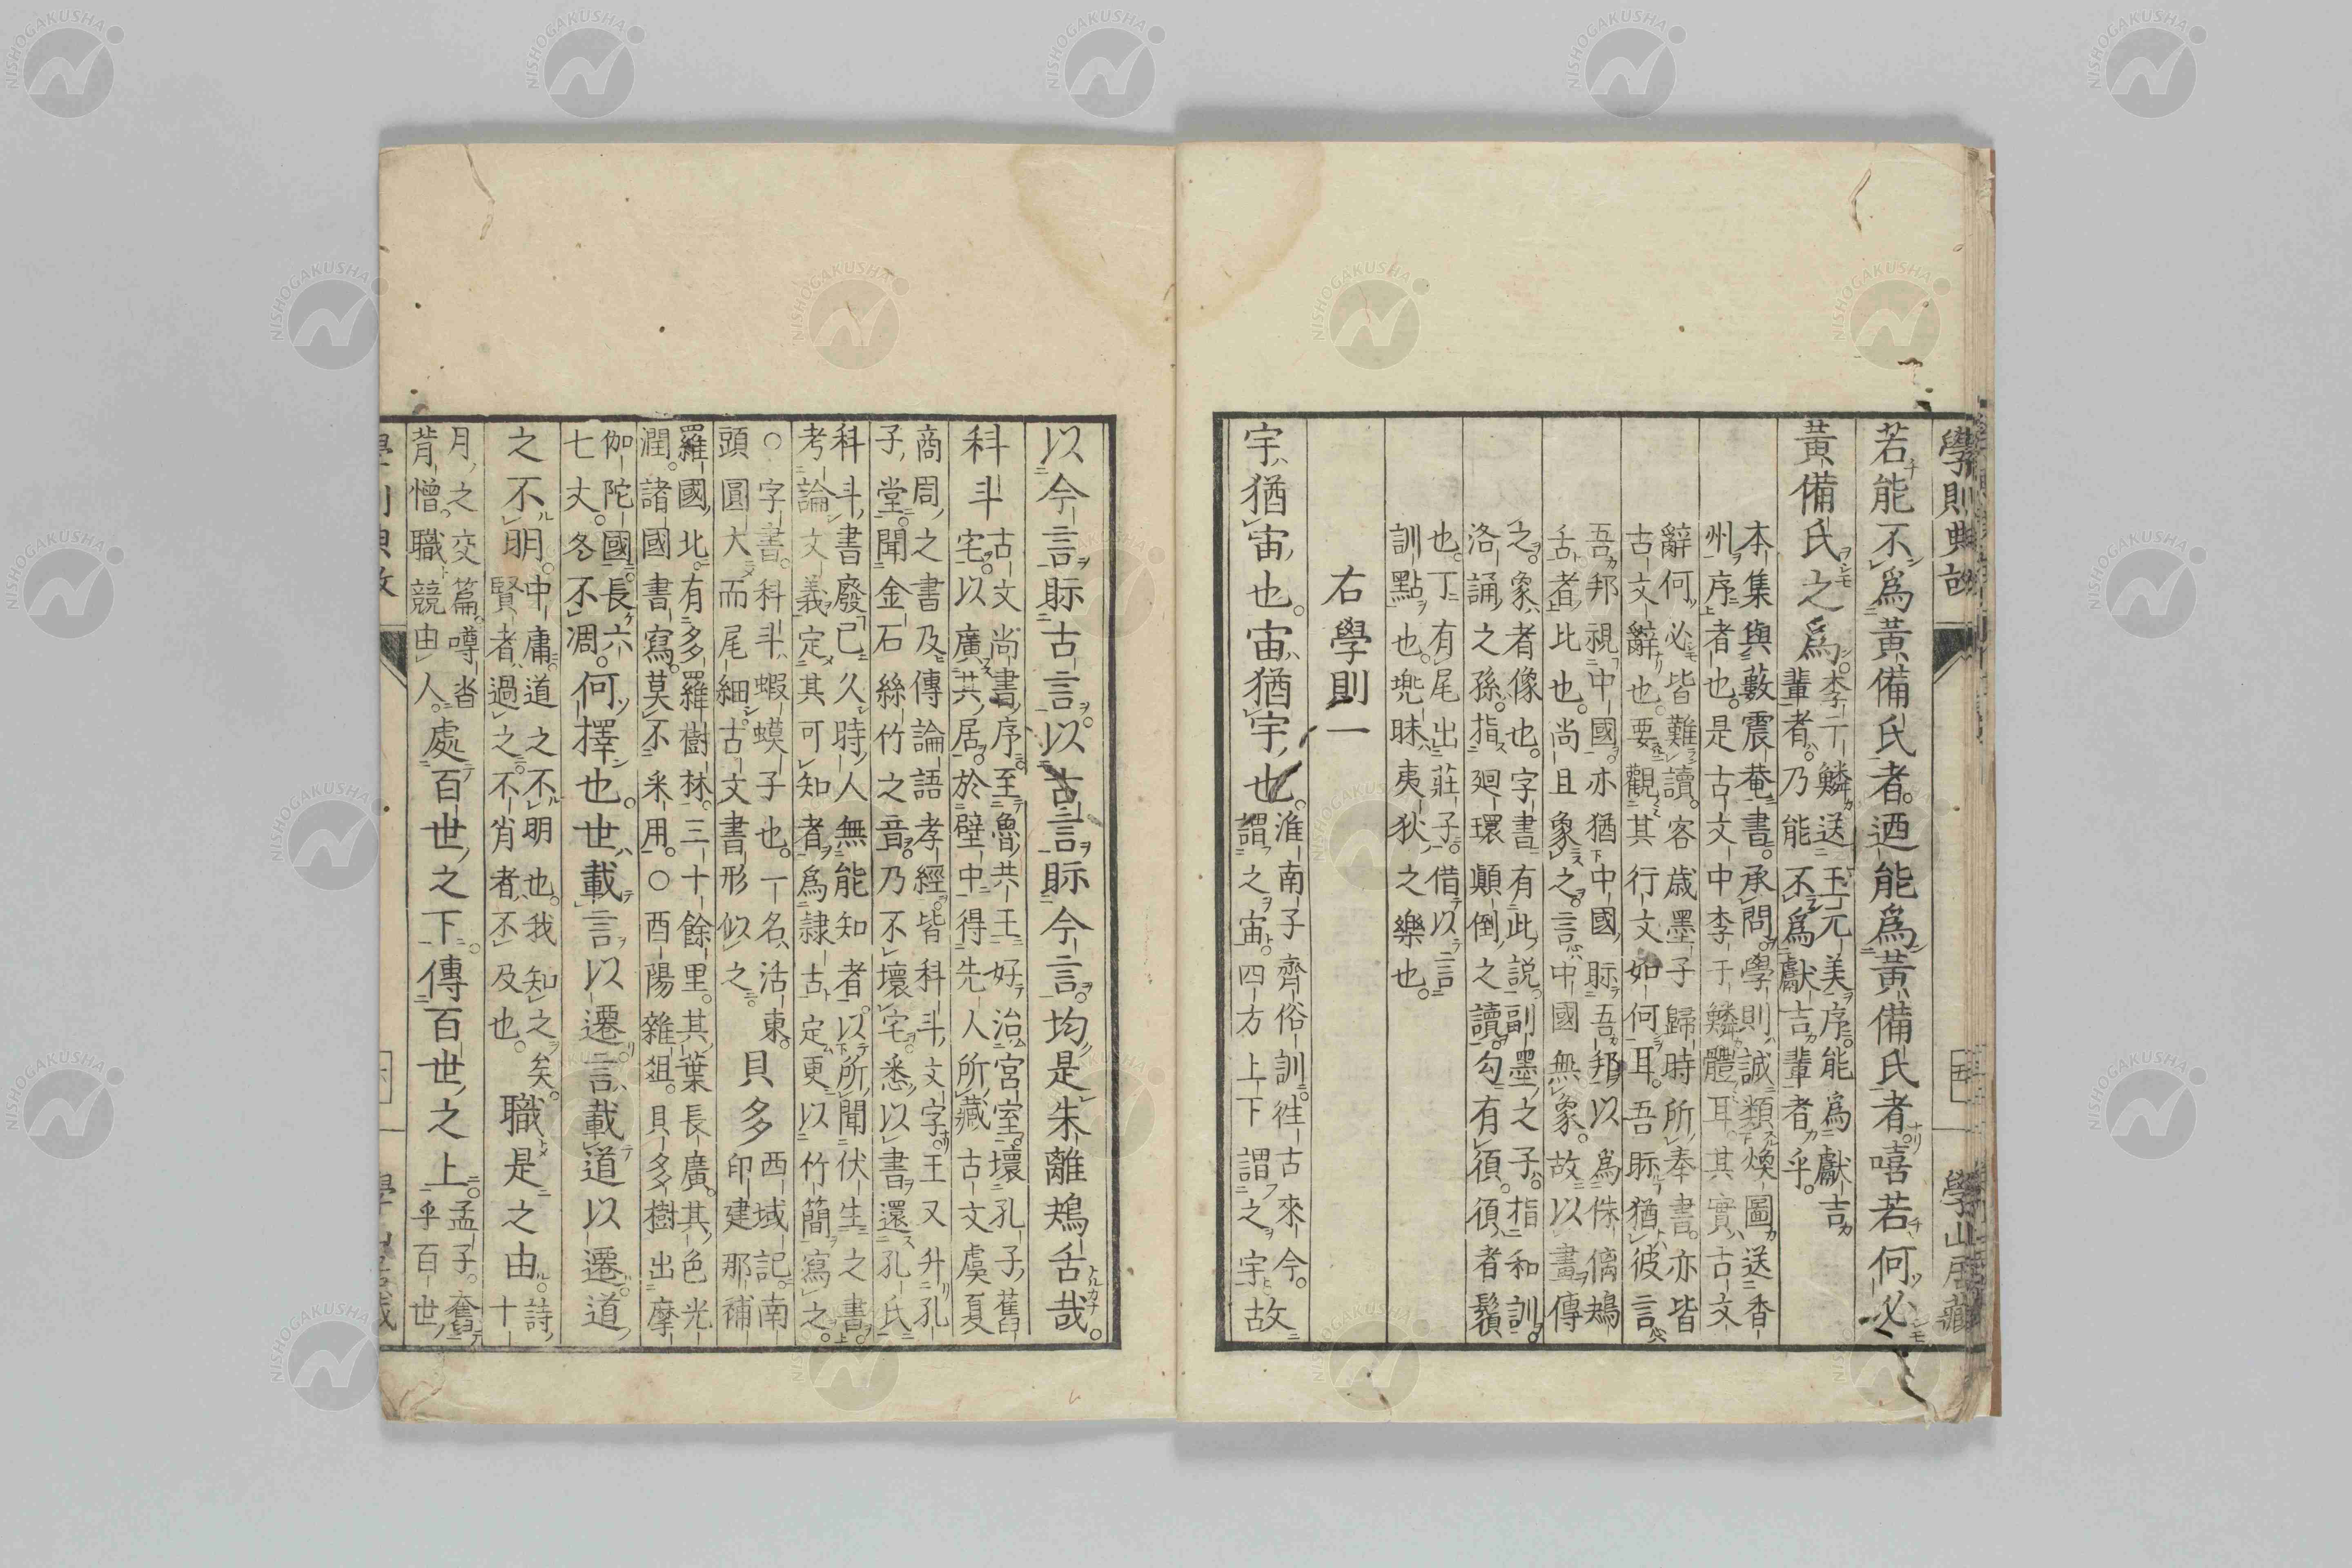 學則典故
學山房藏
若能不爲黃備氏者。迺能爲黃備氏者。嘻若何必
黃備氏之爲。李于鱗送王元美序。能爲獻吉
輩者。乃能不爲獻吉輩者乎。
本集與藪震菴書。承問。學則。誠類煥圖送香
州序者也。是古文中李于鱗體耳。其實古文
辭何必皆難讀。客歲墨子歸時所奉書。亦皆
古文辭也。要觀其行文如何耳。吾眎猶彼言
吾邦視中國。亦猶中國眎吾邦以爲侏𠌯鴂
舌者比也。尚且象之。言中國無象。故以畫傳
之。象者像也。字書有此說。副墨之子。指和訓。
洛誦之孫。指廻環顛倒之讀。勾有須。須者鬚
也。丁有尾出莊子。借以言
訓點也。兜昧夷狄之樂也。
右學則一
宇猶宙也。宙猶宇也。淮南子齊俗訓。徃古來今。
謂之宙。四方上下謂之宇。故
以今言眎古言。以古言眎今言。均是朱離鴂舌哉。
科斗古文尚書序。至魯共王好治宮室。壞孔子舊
宅。以廣其居。於壁中得先人所藏古文虞夏
商周之書及傳論語孝經。皆科斗文字。王又升孔
子堂。聞金石絲竹之音。乃不壞宅。悉以書還孔氏
科斗書廢已久。時人無能知者。以所聞伏生之書。
考論文義。定其可知者。爲隷古定。更以竹簡寫之。
○字書。科斗蝦蟆子也。一名活東。貝多西域記。南
頭圓大而尾細。古文書形似之。印建那補
羅國北。有多羅樹林。三十餘里。其葉長廣。其色光
潤。諸國書寫。莫不采用。○酉陽雜俎。貝多樹出摩
伽陀國。長六
七丈。冬不凋。何擇也。世載言以遷。言載道以遷。道
之不明。中庸。道之不明也。我知之矣。職是之由。詩十
賢者過之。不肖者不及也。
月之交篇。噂沓
背憎。職競由人。處百世之下。傳百世之上。孟子。奮
乎百世